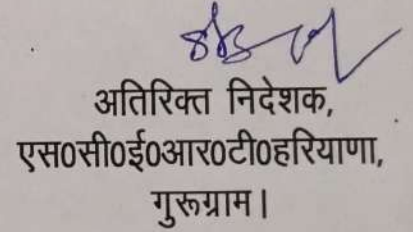 अतिरिक्त निदेशक,
एस0सी0ई0आर0टी0हरियाणा,
गुरूग्राम।